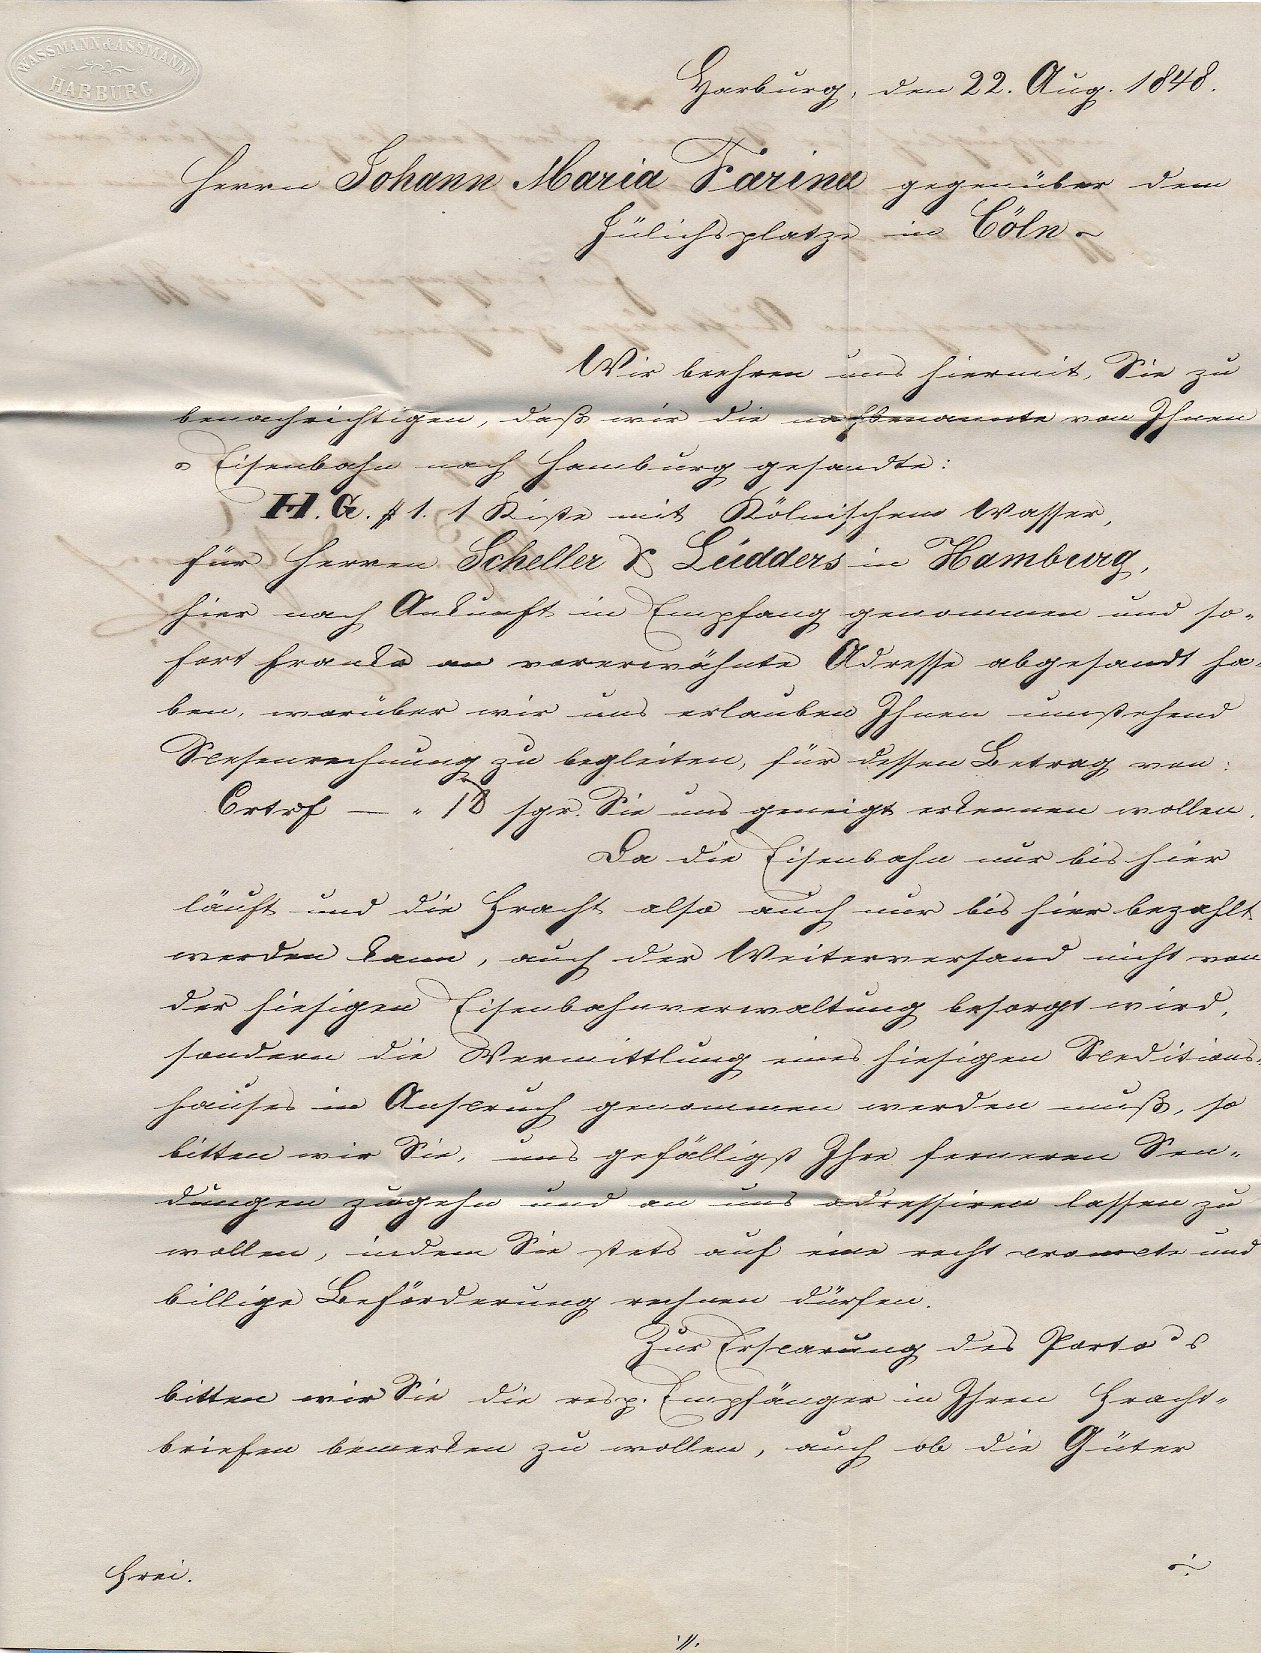 WASSMANN & ASSMANN
HARBURG
Harburg, den 22. Aug. 1848.
Herrn Johann Maria Farina gegenüber dem
Jülichsplatze in Cöln
Wir beehren uns hiermit, Sie zu
benachrichtigen, daß wir die nachbenannte von Ihnen
Eisenbahn nach Hamburg gesandte:
H.G. # 1. 1 Kiste mit Kölnischem Wasser,
für Herren Scheller & Lüdders in Hamburg,
hier nach Ankunft in Empfang genommen und so-
fort franko an vorerwähnte Adresse abgesandt ha-
ben, worüber wir uns erlauben Ihnen umstehend
Spesenrechnung zu begleiten, für dessen Betrag von:
— " 18 sgr. Sie uns geneigt erkennen wollen.
Da die Eisenbahn nur bis hier
läuft und die Fracht also auch nur bis hier bezahlt
werden kann, auch der Weiterversand nicht von
der hiesigen Eisenbahnverwaltung besorgt wird,
sondern die Vermittlung eines hiesigen Speditions-
hauses in Anspruch genommen werden muß, so
bitten wir Sie, uns gefälligst Ihre ferneren Sen-
dungen zugehn und an uns adressiren lassen zu
wollen, indem Sie stets auf eine recht prompte und
billige Beförderung rechnen dürfen.
Zur Ersparung des Porto's
bitten wir Sie die resp. Empfänger in Ihren Fracht-
briefen bemerken zu wollen, auch ob die Güter
frei.